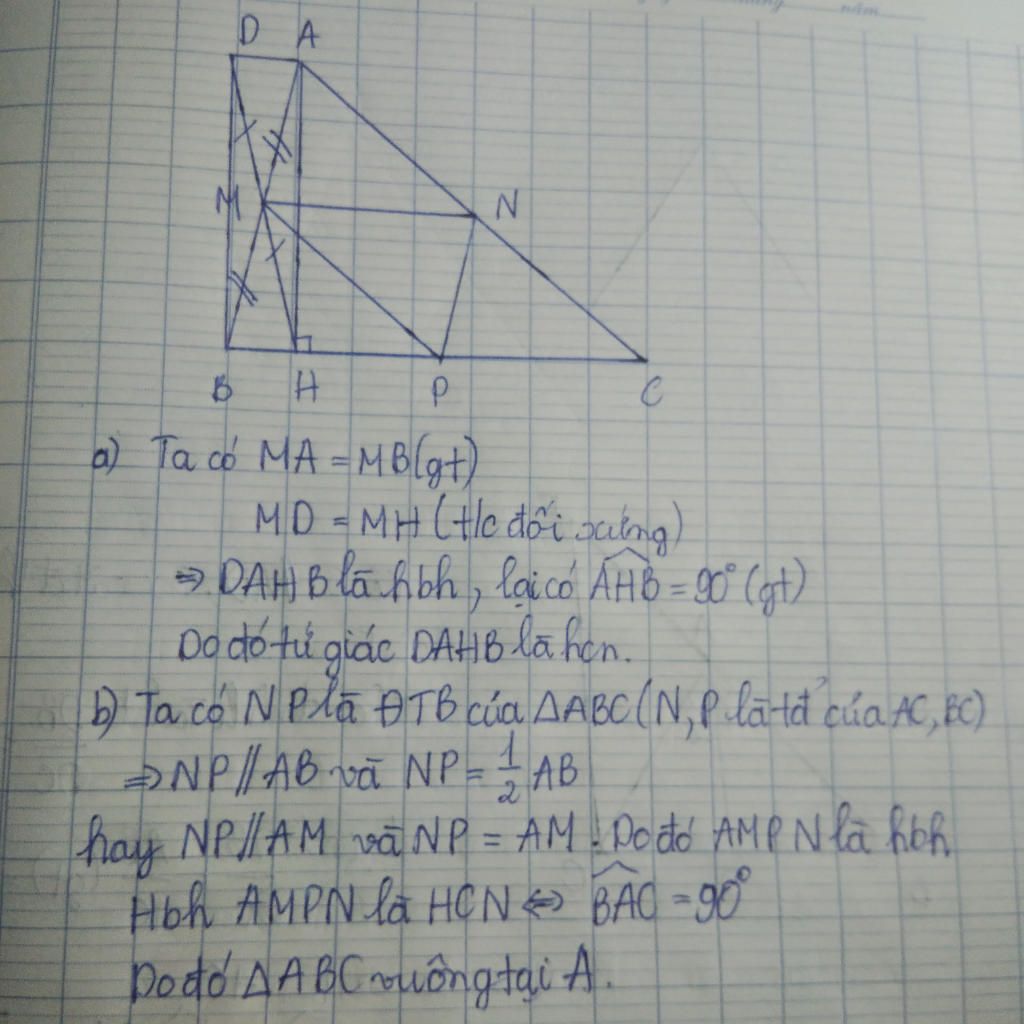 năm
D A
M N
B H P C
a) Ta có MA = MB (gt)
MD = MH (t/c đối xứng)
⇒ DAHB là hbh, lại có \widehat{AHB} = 90° (gt)
Do đó tứ giác DAHB là hcn.
b) Ta có NP là ĐTB của ΔABC (N, P là tđ của AC, BC)
⇒ NP // AB và NP = \frac{1}{2} AB
hay NP // AM và NP = AM. Do đó AMPN là hbh
Hbh AMPN là HCN ⇔ \widehat{BAC} = 90°
Do đó ΔABC vuông tại A.